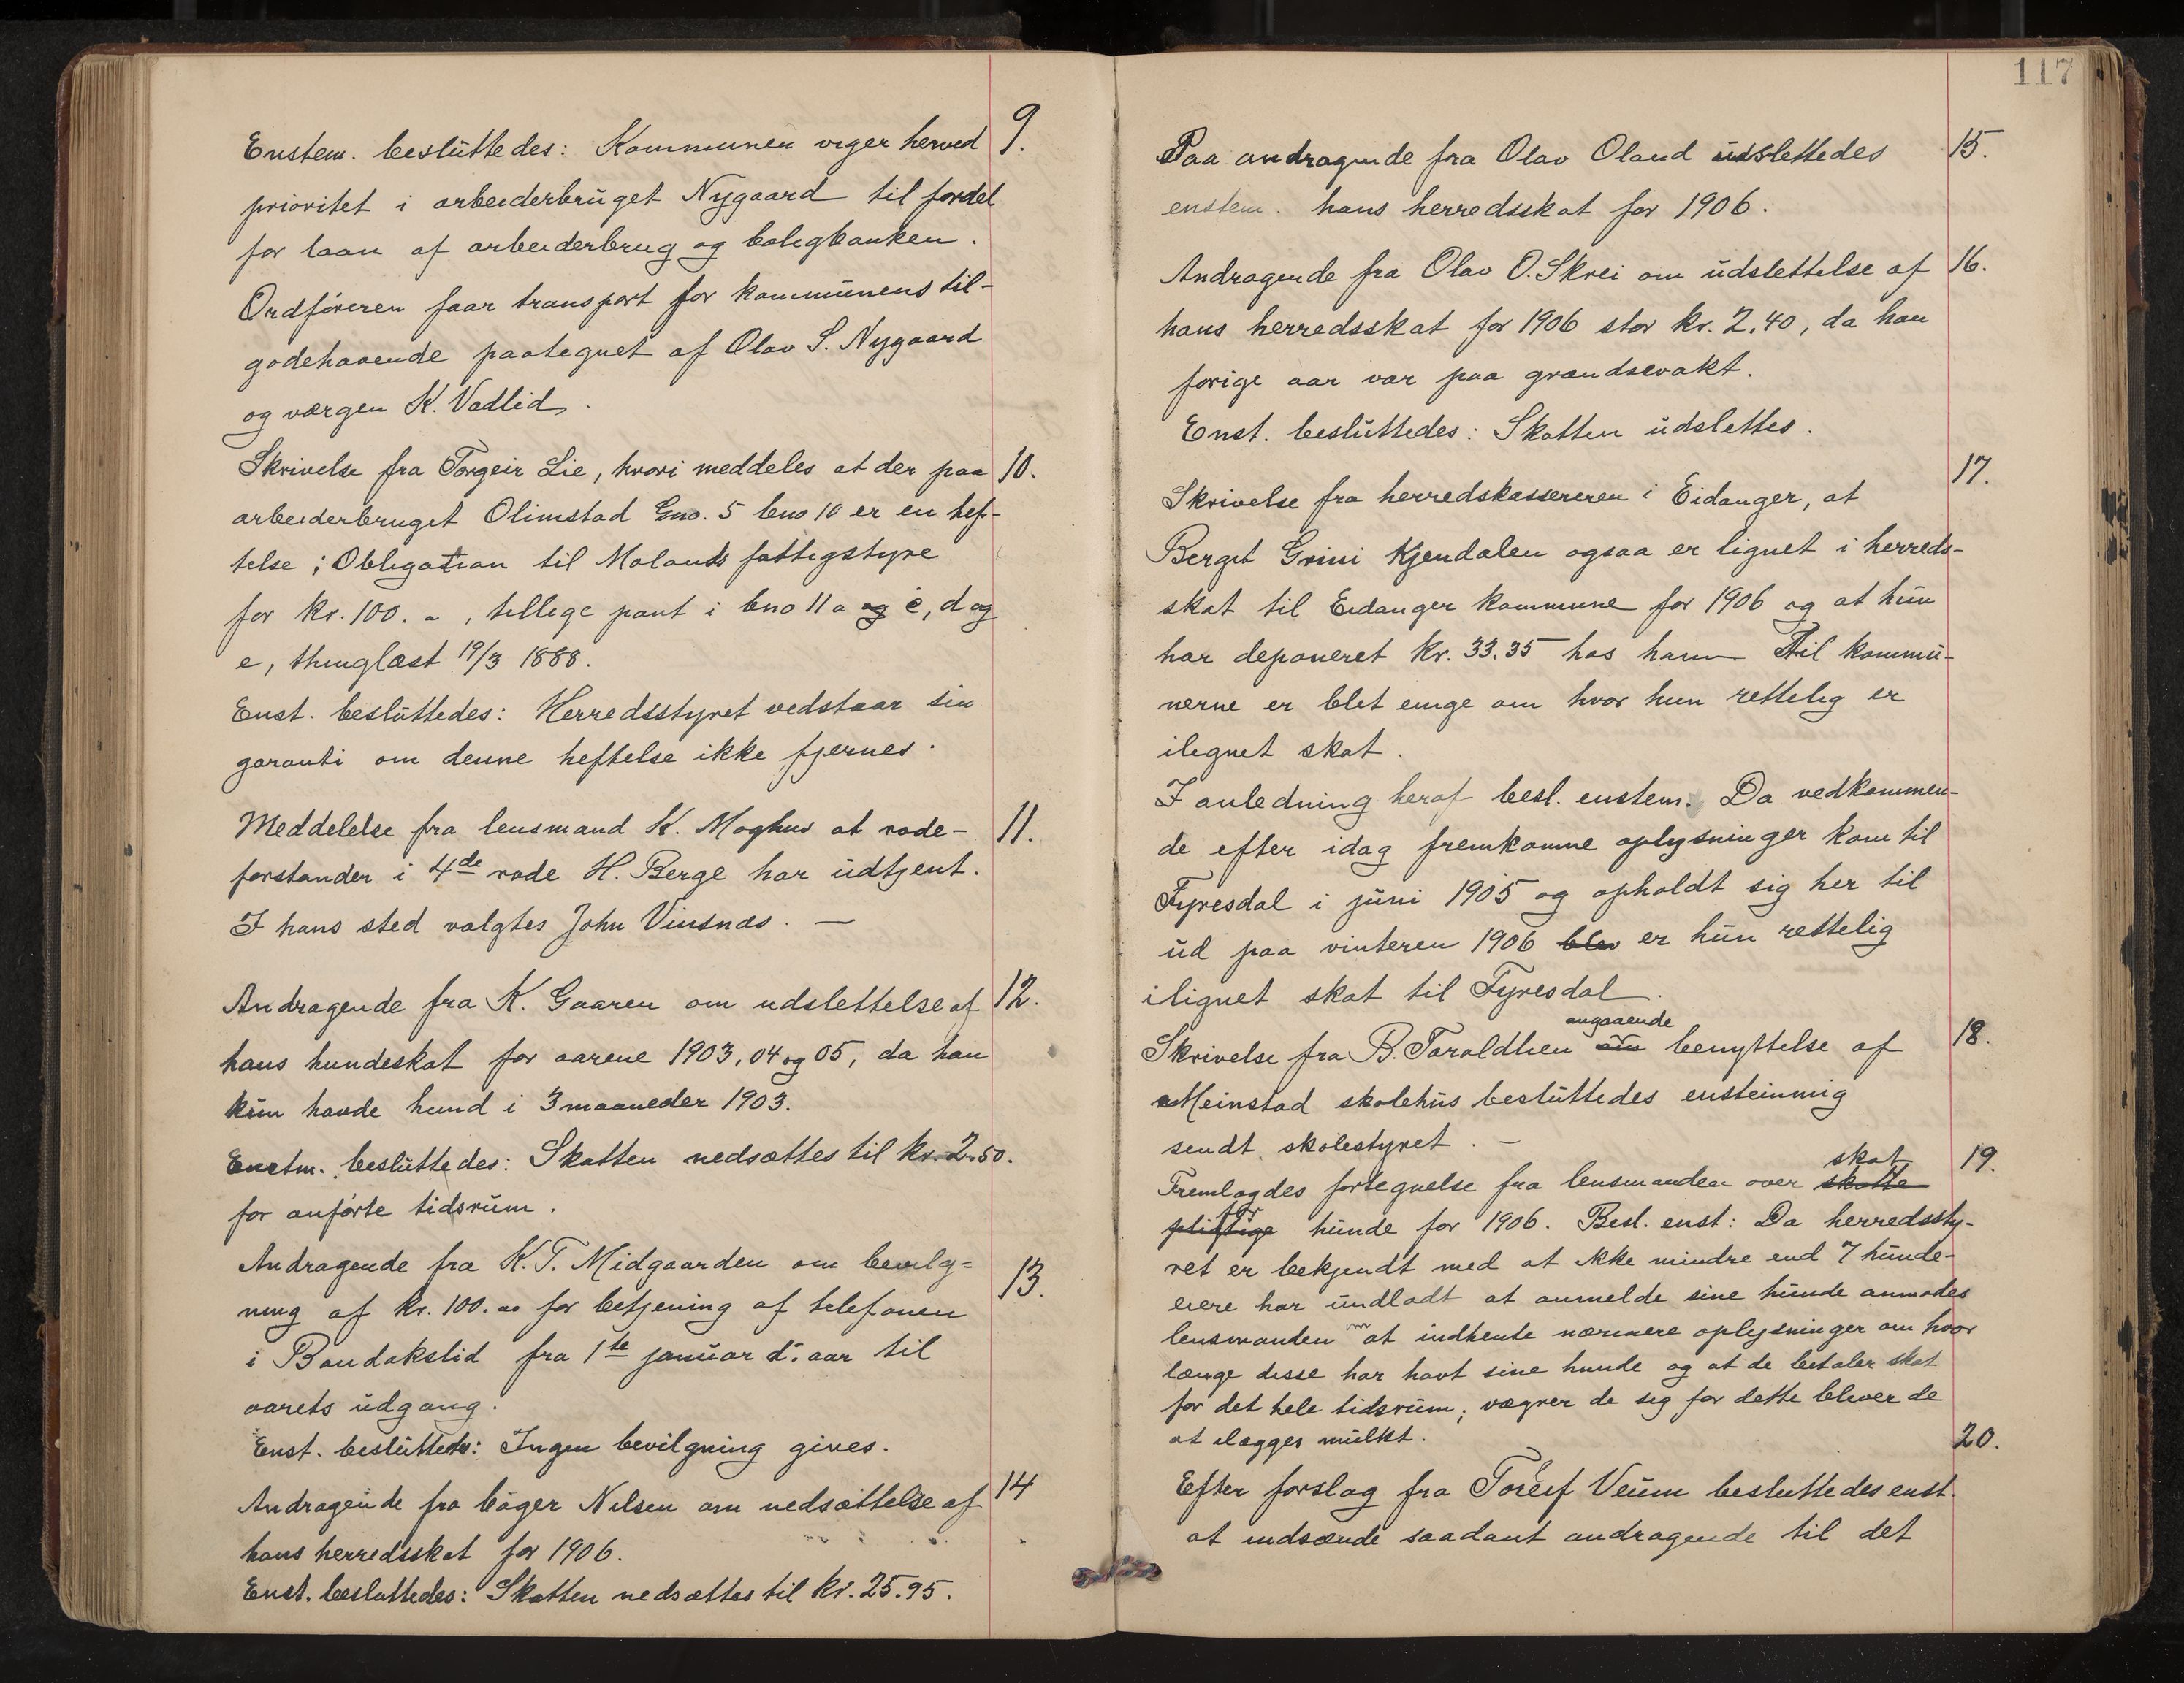 9.
Enstem. besluttedes: Kommunen viger herved
prioritet i arbeiderbruget Nygaard til fordel
for laan af arbeiderbrug og boligbanken.
Ordføreren faar transport for kommunens til-
godehavende paategnet af Olav S. Nygaard
og værgen K. Vadlid.
10.
Skrivelse fra Torgeir Lie, hvori meddeles at der paa
arbeiderbruget Olimstad Gno. 5 bno 10 er en hef-
telse; Obligation til Molands fattigstyre
for kr. 100. - , tillige pant i bno 11 a og c, d og
e, thinglæst 19/3 1888.
Enst. besluttedes: Herredsstyret vedstaar sin
garanti om denne heftelse ikke fjernes.
11.
Meddelelse fra lensmand K. Moghus at rode-
forstander i 4de rode H. Berge har udtjent.
I hans sted valgtes John Vinsnæs. —
12.
Andragende fra K. Gaaren om udslettelse af
hans hundeskat for aarene 1903, 04 og 05, da han
kun havde hund i 3 maaneder 1903.
Enstm. besluttedes: Skatten nedsættes til kr. 2.50.
for anførte tidsrum.
13.
Andragende fra K. T. Midgaarden om bevilg=
ning af kr. 100.00 for betjening af telefonen
i Bandakslid fra 1ste januar d. aar til
aarets udgang.
Enst. besluttedes: Ingen bevilgning gives.
14
Andragende fra bager Nilsen om nedsættelse af
hans herredsskat for 1906.
Enst. besluttedes: Skatten nedsættes til kr. 25.95.
117
15.
Paa andragende fra Olav Oland udslettedes
enstem. hans herredsskat for 1906.
16.
Andragende fra Olav O. Skrei om udslettelse af
hans herredsskat for 1906 stor kr. 2,40, da han
forige aar var paa grændsevakt.
Enst. besluttedes: Skatten udslettes.
17.
Skrivelse fra herredskassereren i Eidanger, at
Berget Grini Kjendalen ogsaa er lignet i herreds-
skat til Eidanger kommune for 1906 og at hun
har deponeret kr. 33.35 hos ham til kommu-
nerne er blet enige om hvor hun rettelig er
ilignet skat.
I anledning heraf besl. enstem. Da vedkommen-
de efter idag fremkomne oplysninger kom til
Fyresdal i juni 1905 og opholdt sig her til
ud paa vinteren 1906 blev er hun rettelig
ilignet skat til Fyresdal.
18.
Skrivelse fra B. Taraldlien om angaaende benyttelse af
Meinstad skolehus besluttedes enstemmig
sendt skolestyret. —
19.
Fremlagdes fortegnelse fra lensmanden over skatte skat
pligtige for hunde for 1906. Besl. enst: Da herredssty-
ret er bekjendt med at ikke mindre end 7 hunde-
eiere har undladt at anmelde sine hunde anmodes
lensmanden om at indhente nærmere oplysninger om hvor
længe disse har havt sine hunde og at de betaler skat
for det hele tidsrum; vægrer de sig for dette bliver de
at ilægges mulkt.
20.
Efter forslag fra Toreif Veum besluttedes enst.
at indsænde saadant andragende til det